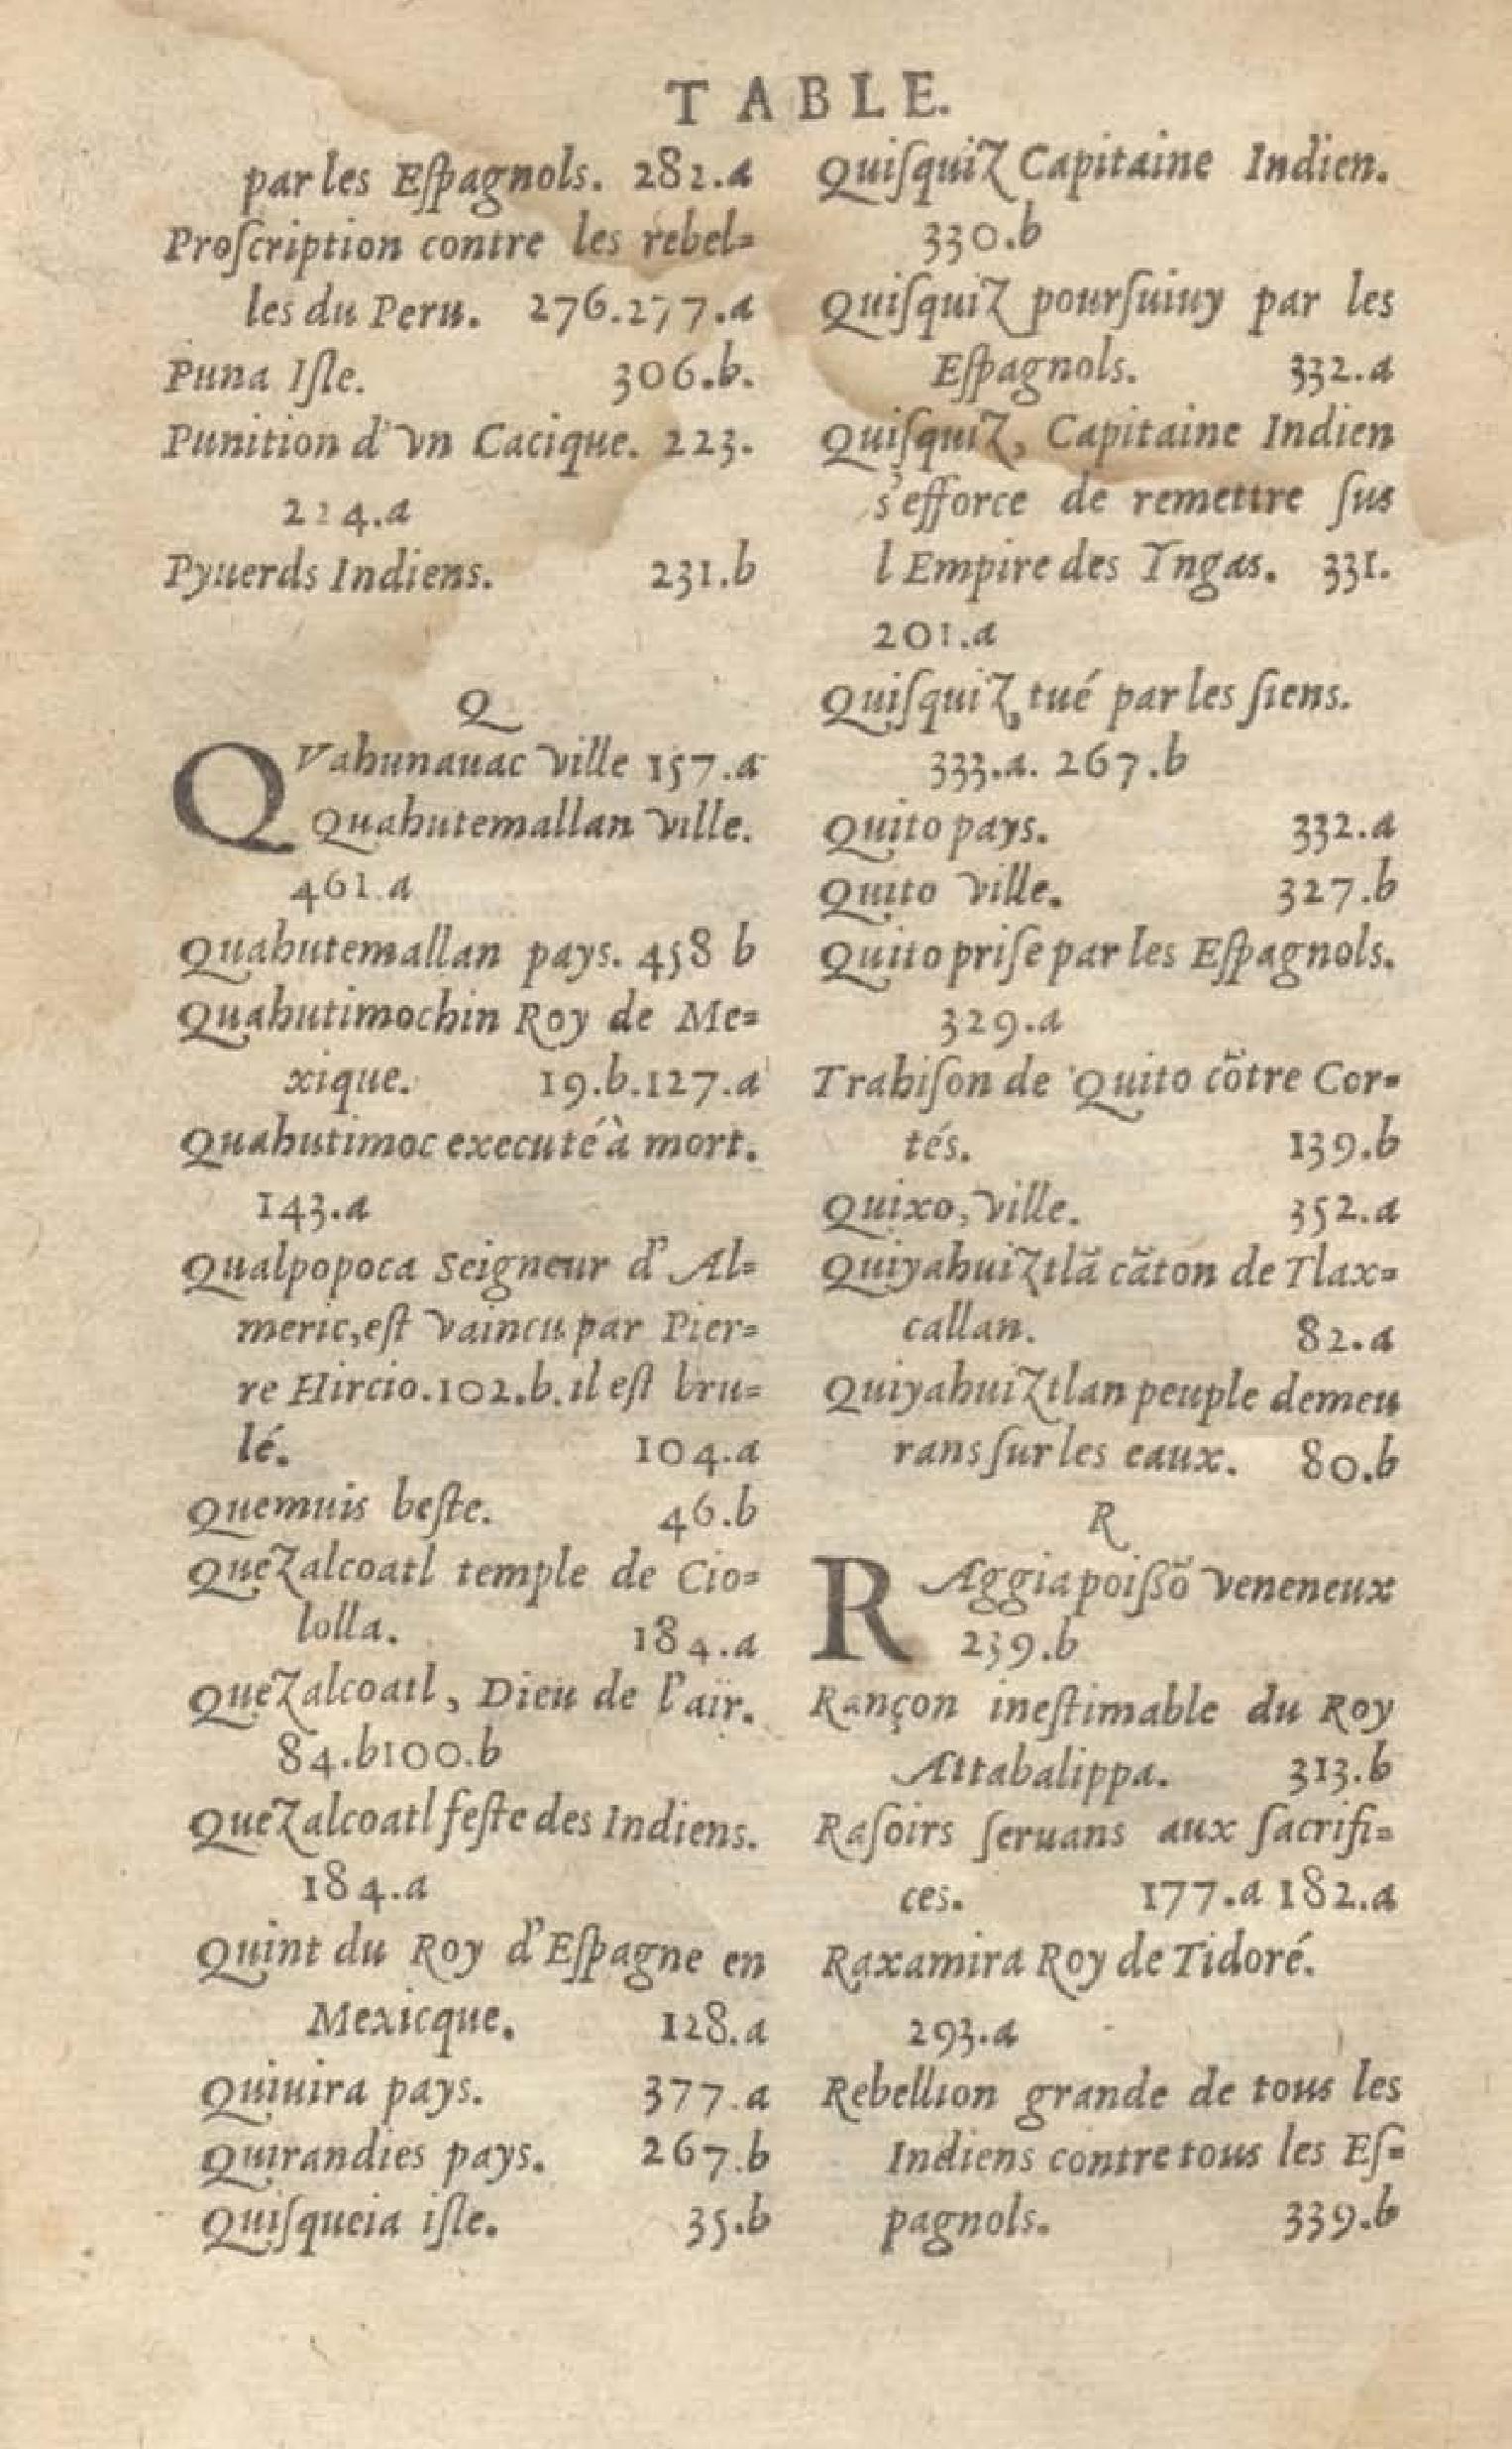 TABLE.
par les Eſpagnols. 282.a
Proſcription contre les rebel=
les du Peru. 276.277.a
Puna Iſle. 306.b.
Punition d'vn Cacique. 223.
224.a
Pyuerds Indiens. 231.b
Q
QVahunauac ville 157.a
Quahutemallan ville.
461.a
Quahutemallan pays. 458 b
Quahutimochin Roy de Me=
xique. 19.b.127.a
Quahutimoc executé à mort.
143.a
Qualpopoca Seigneur d'Al=
meric, eſt vaincu par Pier=
re Hircio. 102.b. il eſt bru=
lé. 104.a
Quemuis beſte. 46.b
Quezalcoatl temple de Cio=
lolla. 184.a
Quezalcoatl, Dieu de l'air.
84.b100.b
Quezalcoatl feſte des Indiens.
184.a
Quint du Roy d'Eſpagne en
Mexicque. 128.a
Quiuira pays. 377.a
Quirandies pays. 267.b
Quiſqueia iſle. 35.b
Quiſquiz Capitaine Indien.
330.b
Quiſquiz pourſuiuy par les
Eſpagnols. 332.a
Quiſquiz, Capitaine Indien
s'efforce de remettre ſus
l Empire des Yngas. 331.
201.a
Quiſquiz, tué par les ſiens.
333.a. 267.b
Quito pays. 332.a
Quito ville. 327.b
Quito priſe par les Eſpagnols.
329.a
Trahiſon de Quito cõtre Cor=
tés. 139.b
Quixo, ville. 352.a
Quiyahuiztlã cãton de Tlax=
callan. 82.a
Quiyahuiztlan peuple demeu
rans ſur les eaux. 80.b
R
RAggia poiſſõ veneneux
239.b
Rançon ineſtimable du Roy
Attabalippa. 313.b
Raſoirs ſeruans aux ſacrifi=
ces. 177.a 182.a
Raxamira Roy de Tidoré.
293.a
Rebellion grande de tous les
Indiens contre tous les Eſ=
pagnols. 339.b